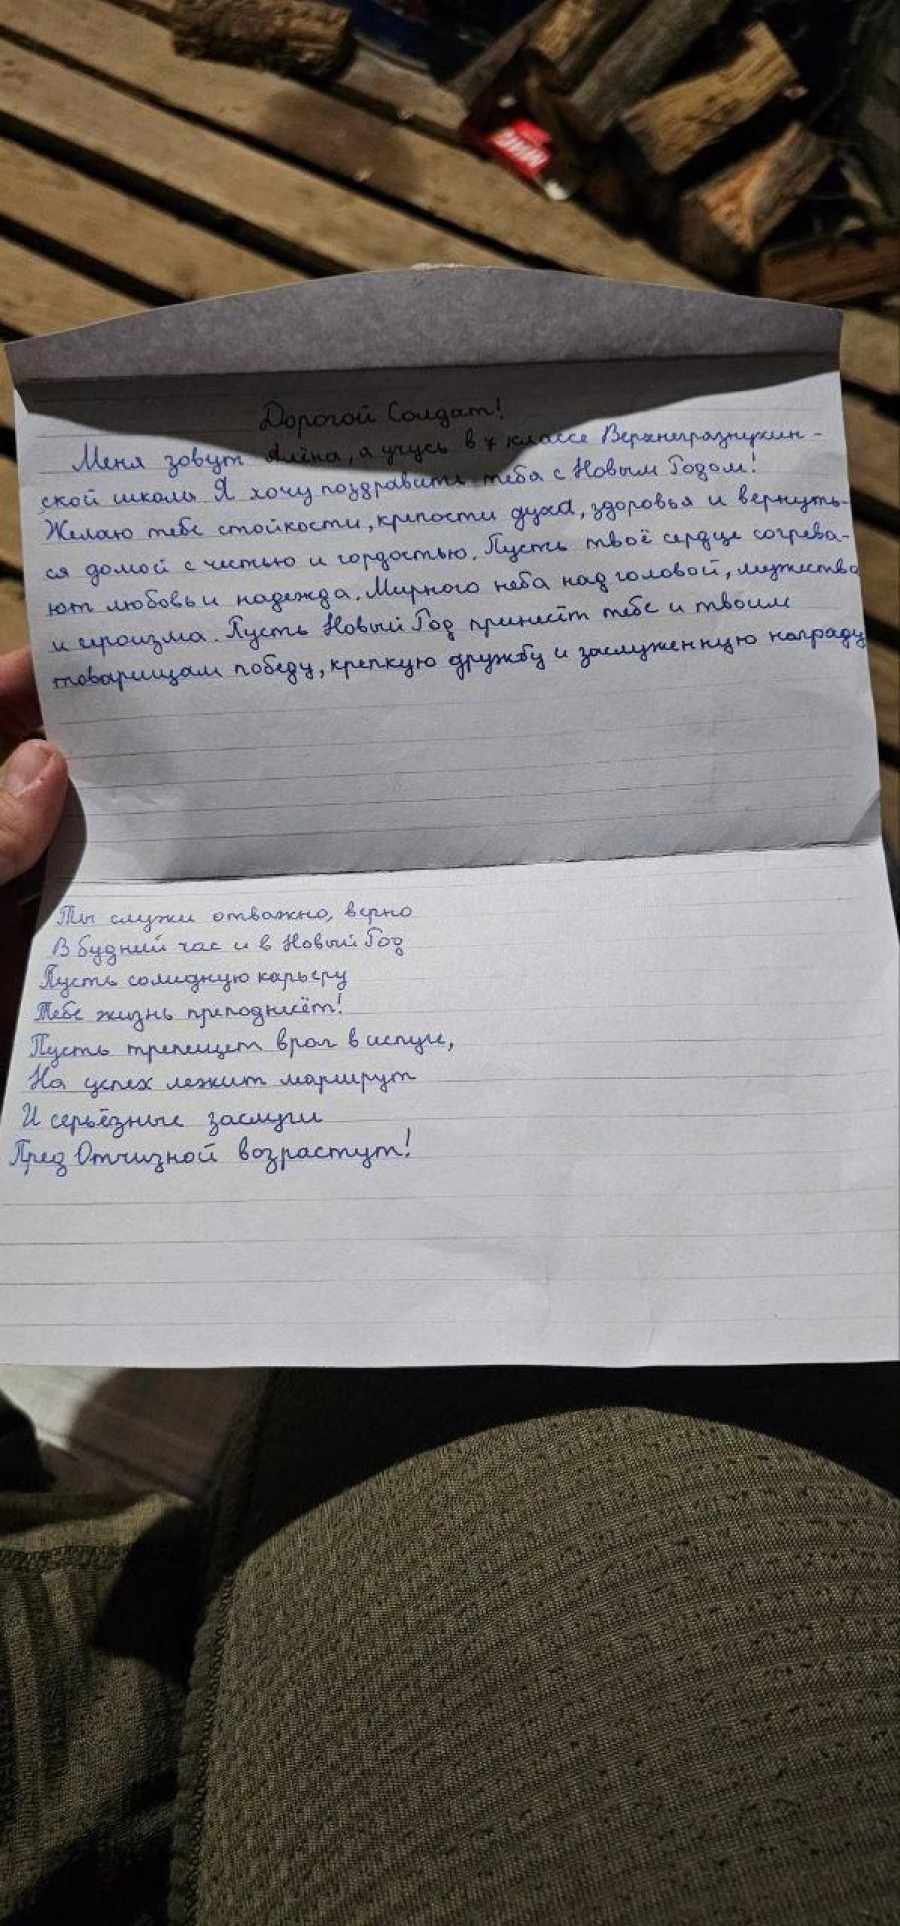 Дорогой Солдат!
Меня зовут Алёна, я учусь в 7 классе Верхнегрязнухин-
ской школы Я хочу поздравить тебя с Новым Годом!
Желаю тебе стойкости, крепости духа, здоровья и вернуть-
ся домой с честью и гордостью. Пусть твоё сердце согрева-
ют любовь и надежда. Мирного неба над головой, мужества
и героизма. Пусть Новый Год принесёт тебе и твоим
товарищам победу, крепкую дружбу и заслуженную награду
Ты служи отважно, верно
В будний час и в Новый Год
Пусть солидную карьеру
Тебе жизнь преподнесёт!
Пусть трепещет враг в испуге,
На успех лежит маршрут
И серьёзные заслуги
Пред Отчизной возрастут!